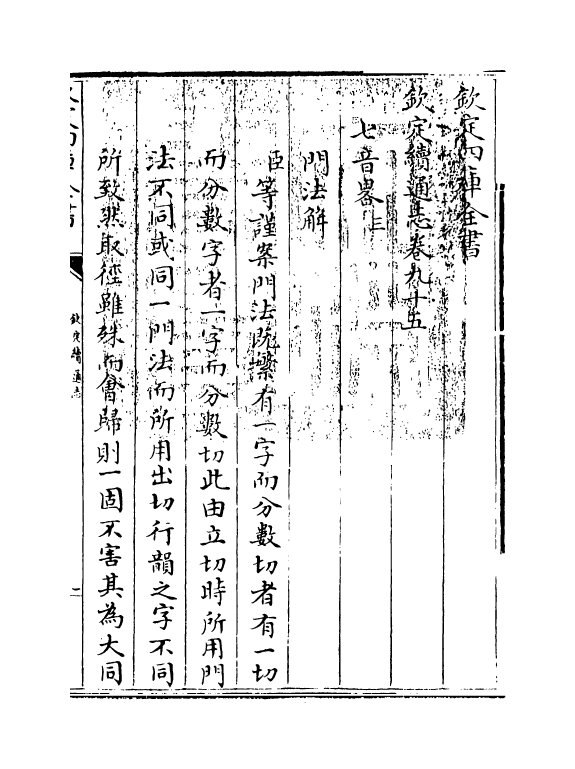 欽定四庫全書
欽定續通志卷九十五
七音畧上
門法解
臣等謹案門法既繁有一字而分數切者有一切
而分數字者一字而分數切此由立切時所用門
法不同或同一門法而所用出切行韻之字不同
所致然取徑雖殊而會歸則一固不害其為大同
欽定續通志